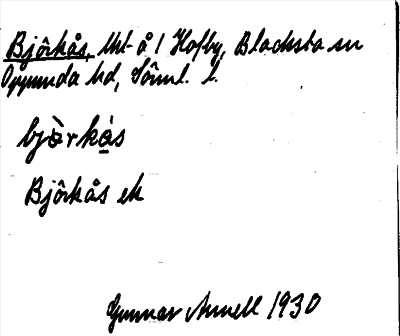 Björkås, Utt å 1 Hofby, Blacksta sn
Oppunda hd, Sörml. l.
bjàrkås
Björkås ek
Gunnar Arnell 1930